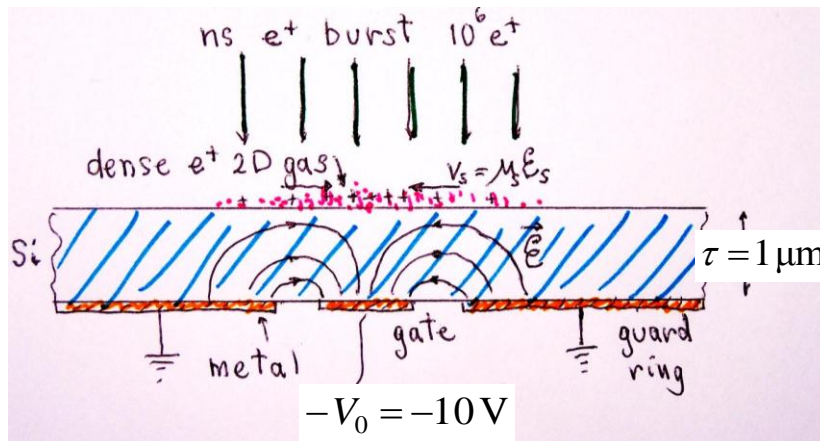 ns e⁺ burst 10⁶ e⁺
dense e⁺ 2D gas
v_s = μ_s ℰ_s
Si
ℰ⃗
τ = 1 μm
metal
gate
guard
ring
−V₀ = −10 V